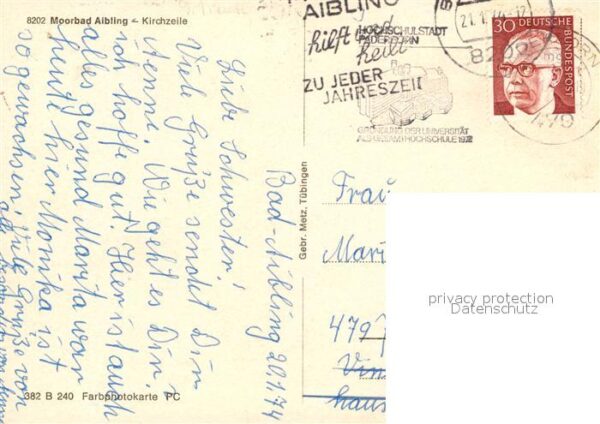 8202 Moorbad Aibling - Kirchzeile
AIBLING
hilft und
heilt
ZU JEDER
JAHRESZEIT
HOCHSCHULSTADT
PADERBORN
GRÜNDUNG DER UNIVERSITÄT
ALS GESAMTHOCHSCHULE 1972
21.1.74-12
8202
479
30 DEUTSCHE
BUNDESPOST
Bad-Aibling 20.1.74
Liebe Schwester!
Viele Grüße sendet Dir
Wie geht es Dir,
ich hoffe gut. Hier ist auch
alles gesund Marita war
heute hier Monika ist
so gewachsen. Viele Grüße von
Gebr. Metz, Tübingen
Frau
Mari
479
382 B 240 Farbphotokarte PC
privacy protection
Datenschutz